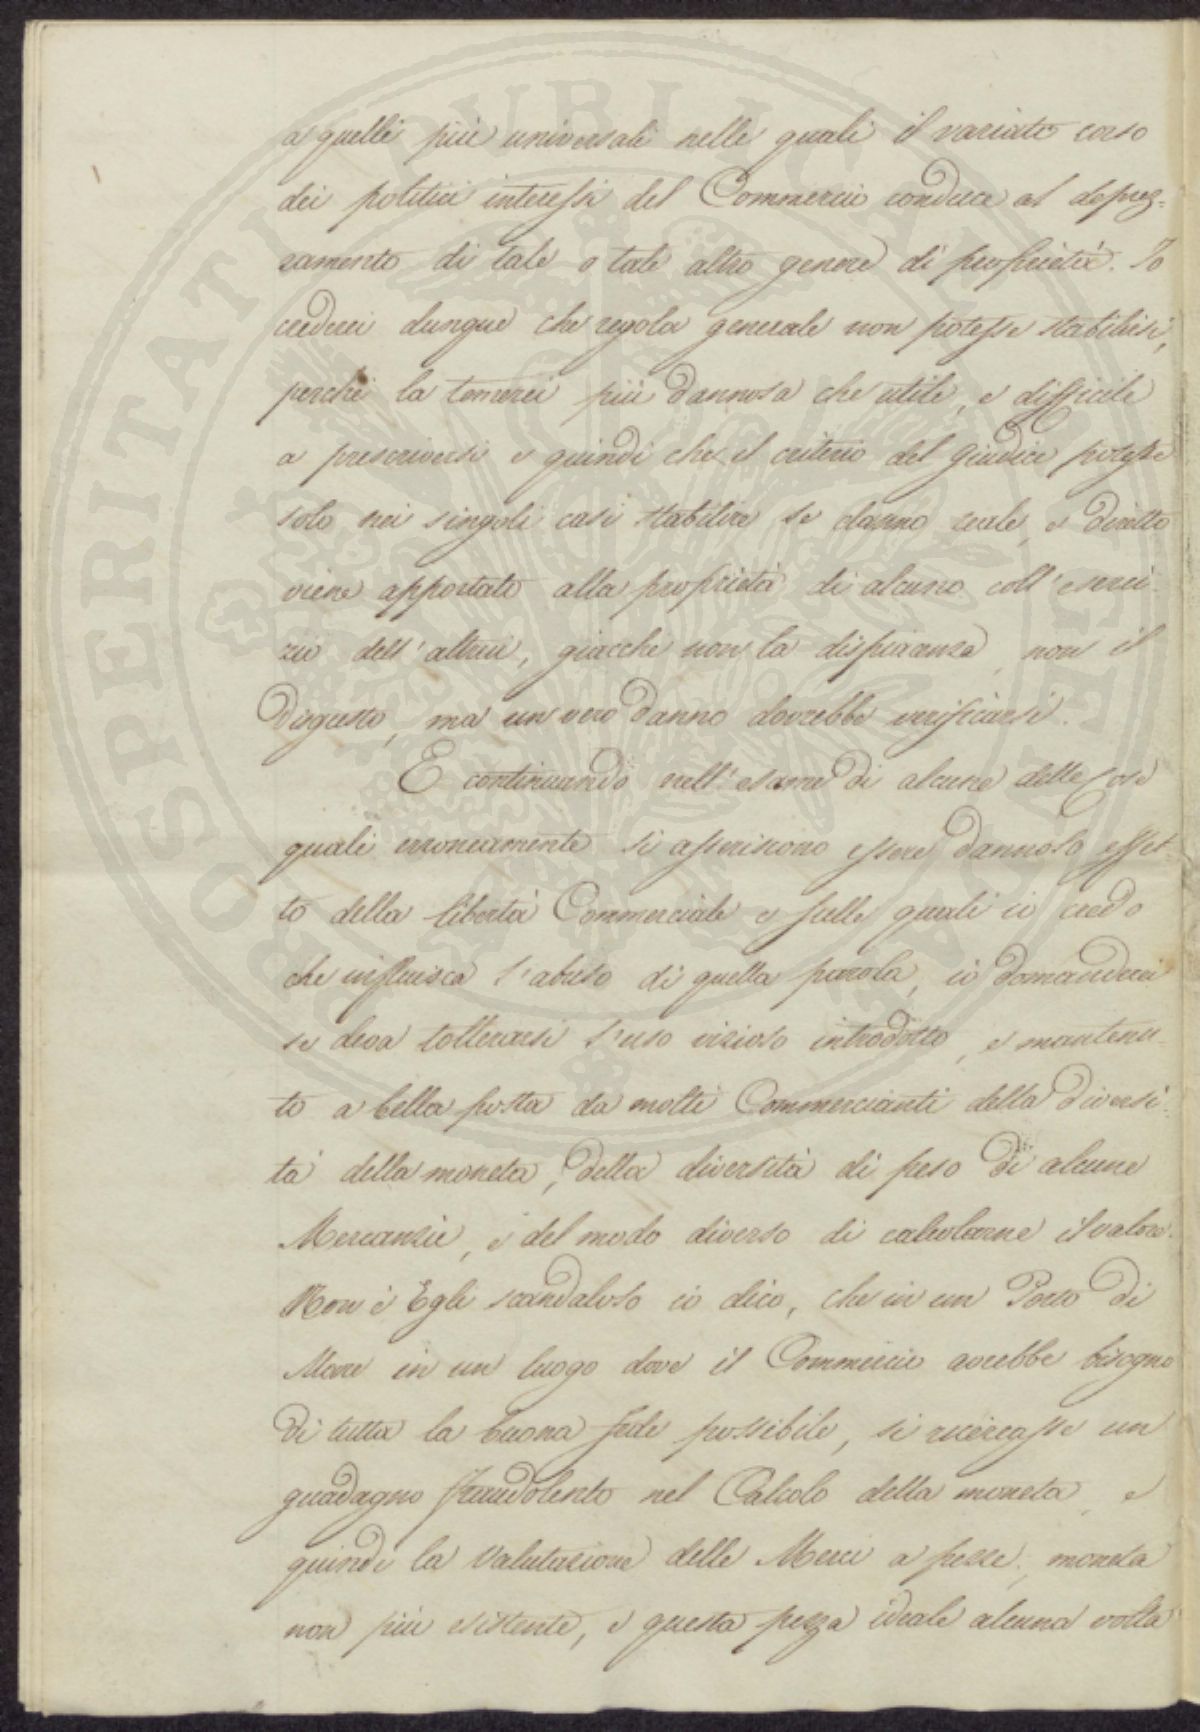 a quelli più universali nelle quali il variato corso
dei politici interessi del Commercio conduce al deprez-
zamento di tale o tale altro genere di proprietà. Io
crederei dunque che regola generale non potesse stabilirsi,
perchè la temerei più dannosa che utile, e difficile
a prescriversi e quindi che il criterio del Giudice potesse
solo nei singoli casi stabilire se danno reale, e diretto
viene apportato alla proprietà di alcuno coll'eserci-
zio dell'altrui, giacche non la dispiacenza, non il
Disgusto, ma un vero Danno dovrebbe verificarsi.
E continuando nell'esame di alcune delle cose
quali erroneamente si asseriscono essere Dannoso effet-
to della libertà Commerciale e sulle quali io credo
che influisca l'abuso di quella parola, io Domanderei
se deva tollerarsi l'uso vizioso introdotto, e mantenu-
to a bella posta da molti Commercianti della Diversi-
tà della moneta, Della diversità di peso Di alcune
Mercanzie, e del modo diverso di calcolarne il valore.
Non è Egli scandaloso io dico, che in un Porto Di
Mare in un luogo dove il Commercio avrebbe bisogno
Di tutta la buona fede possibile, si ricercasse un
guadagno fraudolento nel Calcolo della moneta, e
quindi la Valutazione delle Merci a pezze; moneta
non più esistente, e questa pezza ideale alcuna volta
PROSPERITATI PVBLICAE